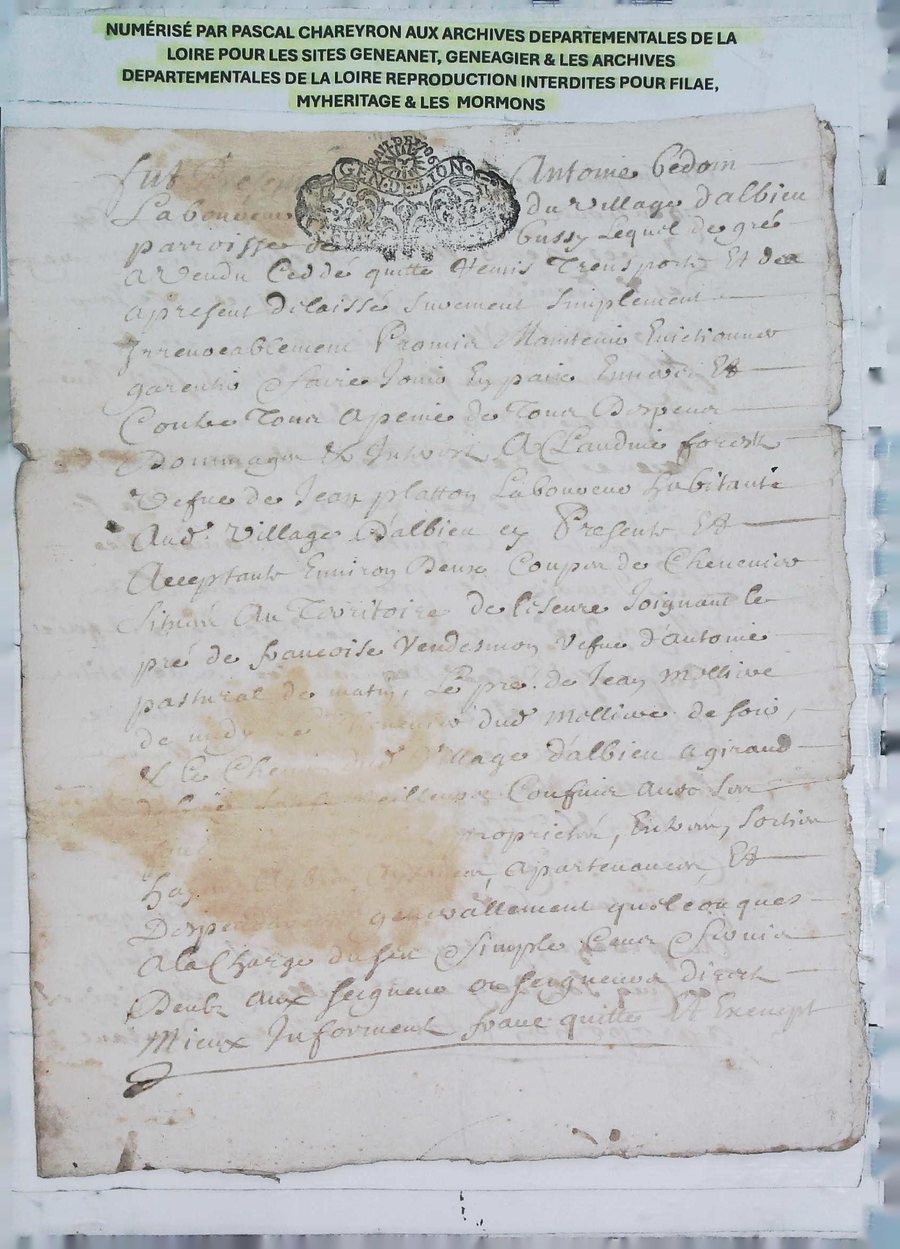 NUMÉRISÉ PAR PASCAL CHAREYRON AUX ARCHIVES DEPARTEMENTALES DE LA
LOIRE POUR LES SITES GENEANET, GENEAGIER & LES ARCHIVES
DEPARTEMENTALES DE LA LOIRE REPRODUCTION INTERDITES POUR FILAE,
MYHERITAGE & LES MORMONS
GEN·DE·LYON
fut Present Antoine Gedoin
Laboureur du village d'albieu
parroisse de bussy Lequel de gré
a Vendu Ceddé quitte Remis Transporté Et des
apresent delaissé purement simplement
Irrevocablement Promis Maintenir
garentir & faire Jouir En paix Envers Et
Contre Tous a peine de Tous Despens
Dommages & Interest A Claudine forest
Vefue de Jean platton Laboureur habitante
Aud. Village d'albieu cy Presente Et
Acceptante Environ Deux Coupes de Chenevier
Situés Au Territoire de Joignant le
pré de francoise Vendesmon Vefue d'antoine
pastural de matin, Le pré de Jean Mellive
de dud Mellive de soir,
& Le Chemin dud Village d'albieu
Confins Avec Ses
proprietés, Entrées, Sorties
apartenances, Et
generallement quelconques
a la Charge du fut & Simple Cens & Servis
Deubz aux Seigneur ou Seigneurs
Mieux Informent franc quitte Et Exempt